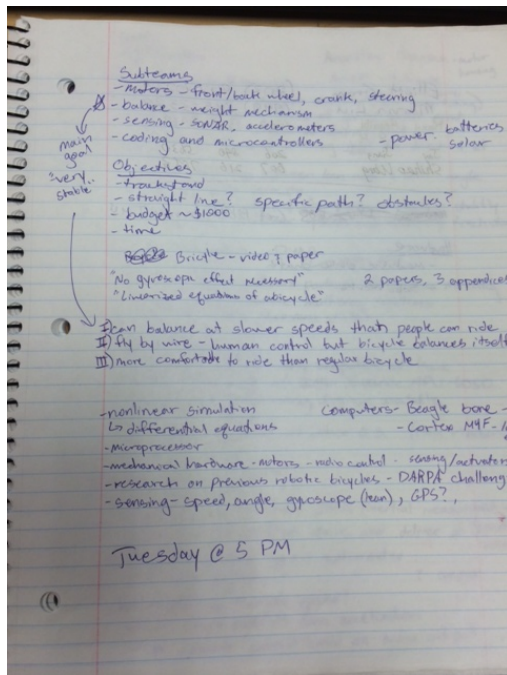 Subteams
- motors - front/back wheel, crank, steering
- balance - weight mechanism
- sensing - SONAR, accelerometers
- coding and microcontrollers - power: batteries
solar
main
goal
"very
stable"
Objectives
- trackstand
- straight line? specific path? obstacles?
- budget ~$1000
- time
Bricycle - video & paper
"No gyroscopic effect necessary" 2 papers, 3 appendices
"Linearized equations of a bicycle"
I) can balance at slower speeds than people can ride
II) fly by wire - human control but bicycle balances itself
III) more comfortable to ride than regular bicycle
- nonlinear simulation Computers - Beagle bone -
↳ differential equations - Cortex M4F -
- microprocessor
- mechanical hardware - motors - radio control - sensing/actuators
- research on previous robotic bicycles - DARPA challeng
- sensing - speed, angle, gyroscope (lean), GPS?,
Tuesday @ 5 PM